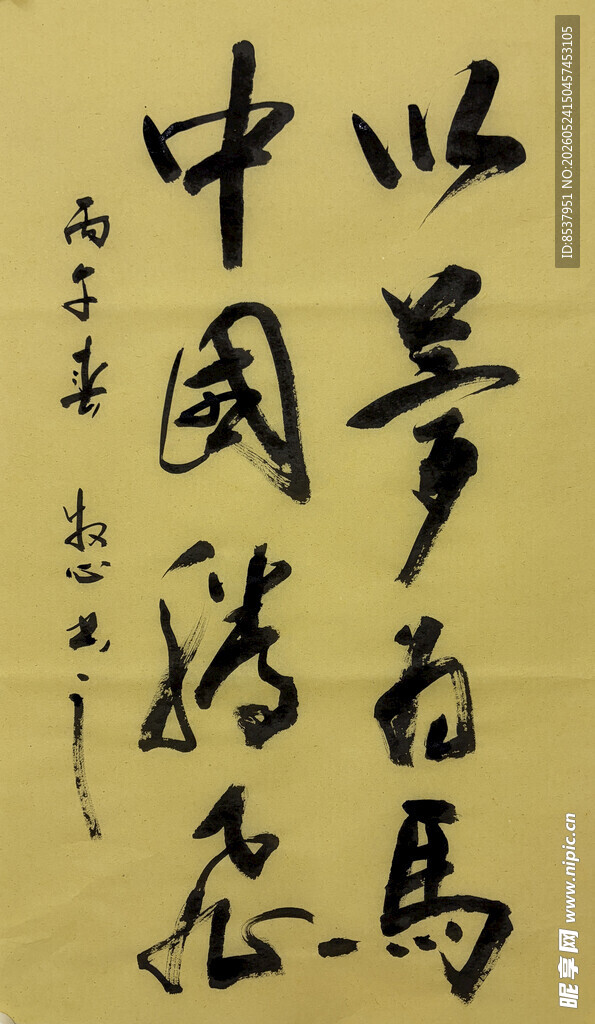 以夢为馬
中國腾飛
丙午春 牧心书之
ID:8537951 NO:20260524150457453105
昵享网 www.nipic.cn